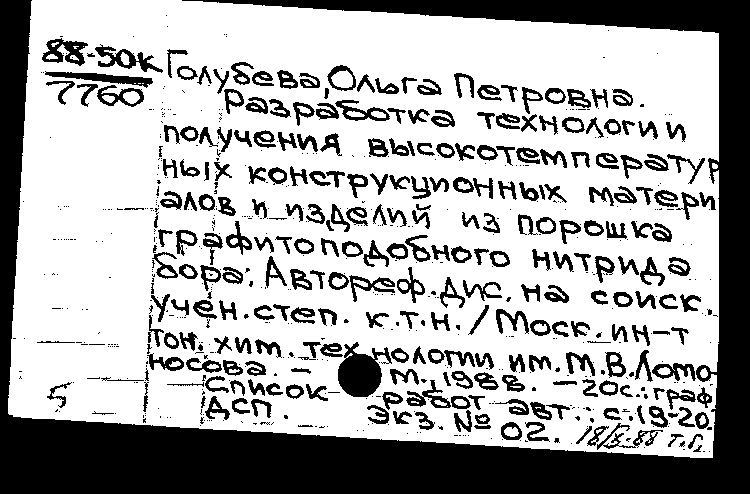 88-50к
7760
Голубева, Ольга Петровна.
Разработка технологии
получения высокотемператур
ных конструкционных матери
алов и изделий из порошка
графитоподобного нитрида
бора: Автореф. дис. на соиск.
учен. степ. к.т.н. / Моск. ин-т
тон. хим. технологии им. М.В. Ломо-
носова. - М., 1988. - 20 с.: граф.
Список работ авт.: с. 19-20.
ДСП. Экз. № 02.
5